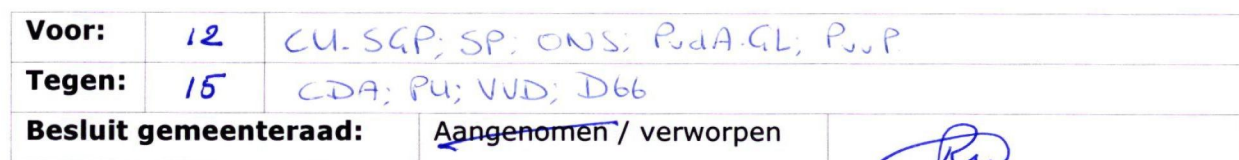 Voor: 12 CU-SGP; SP; ONS; PvdA-GL; PvvP
Tegen: 15 CDA; PU; VVD; D66
Besluit gemeenteraad: Aangenomen / verworpen